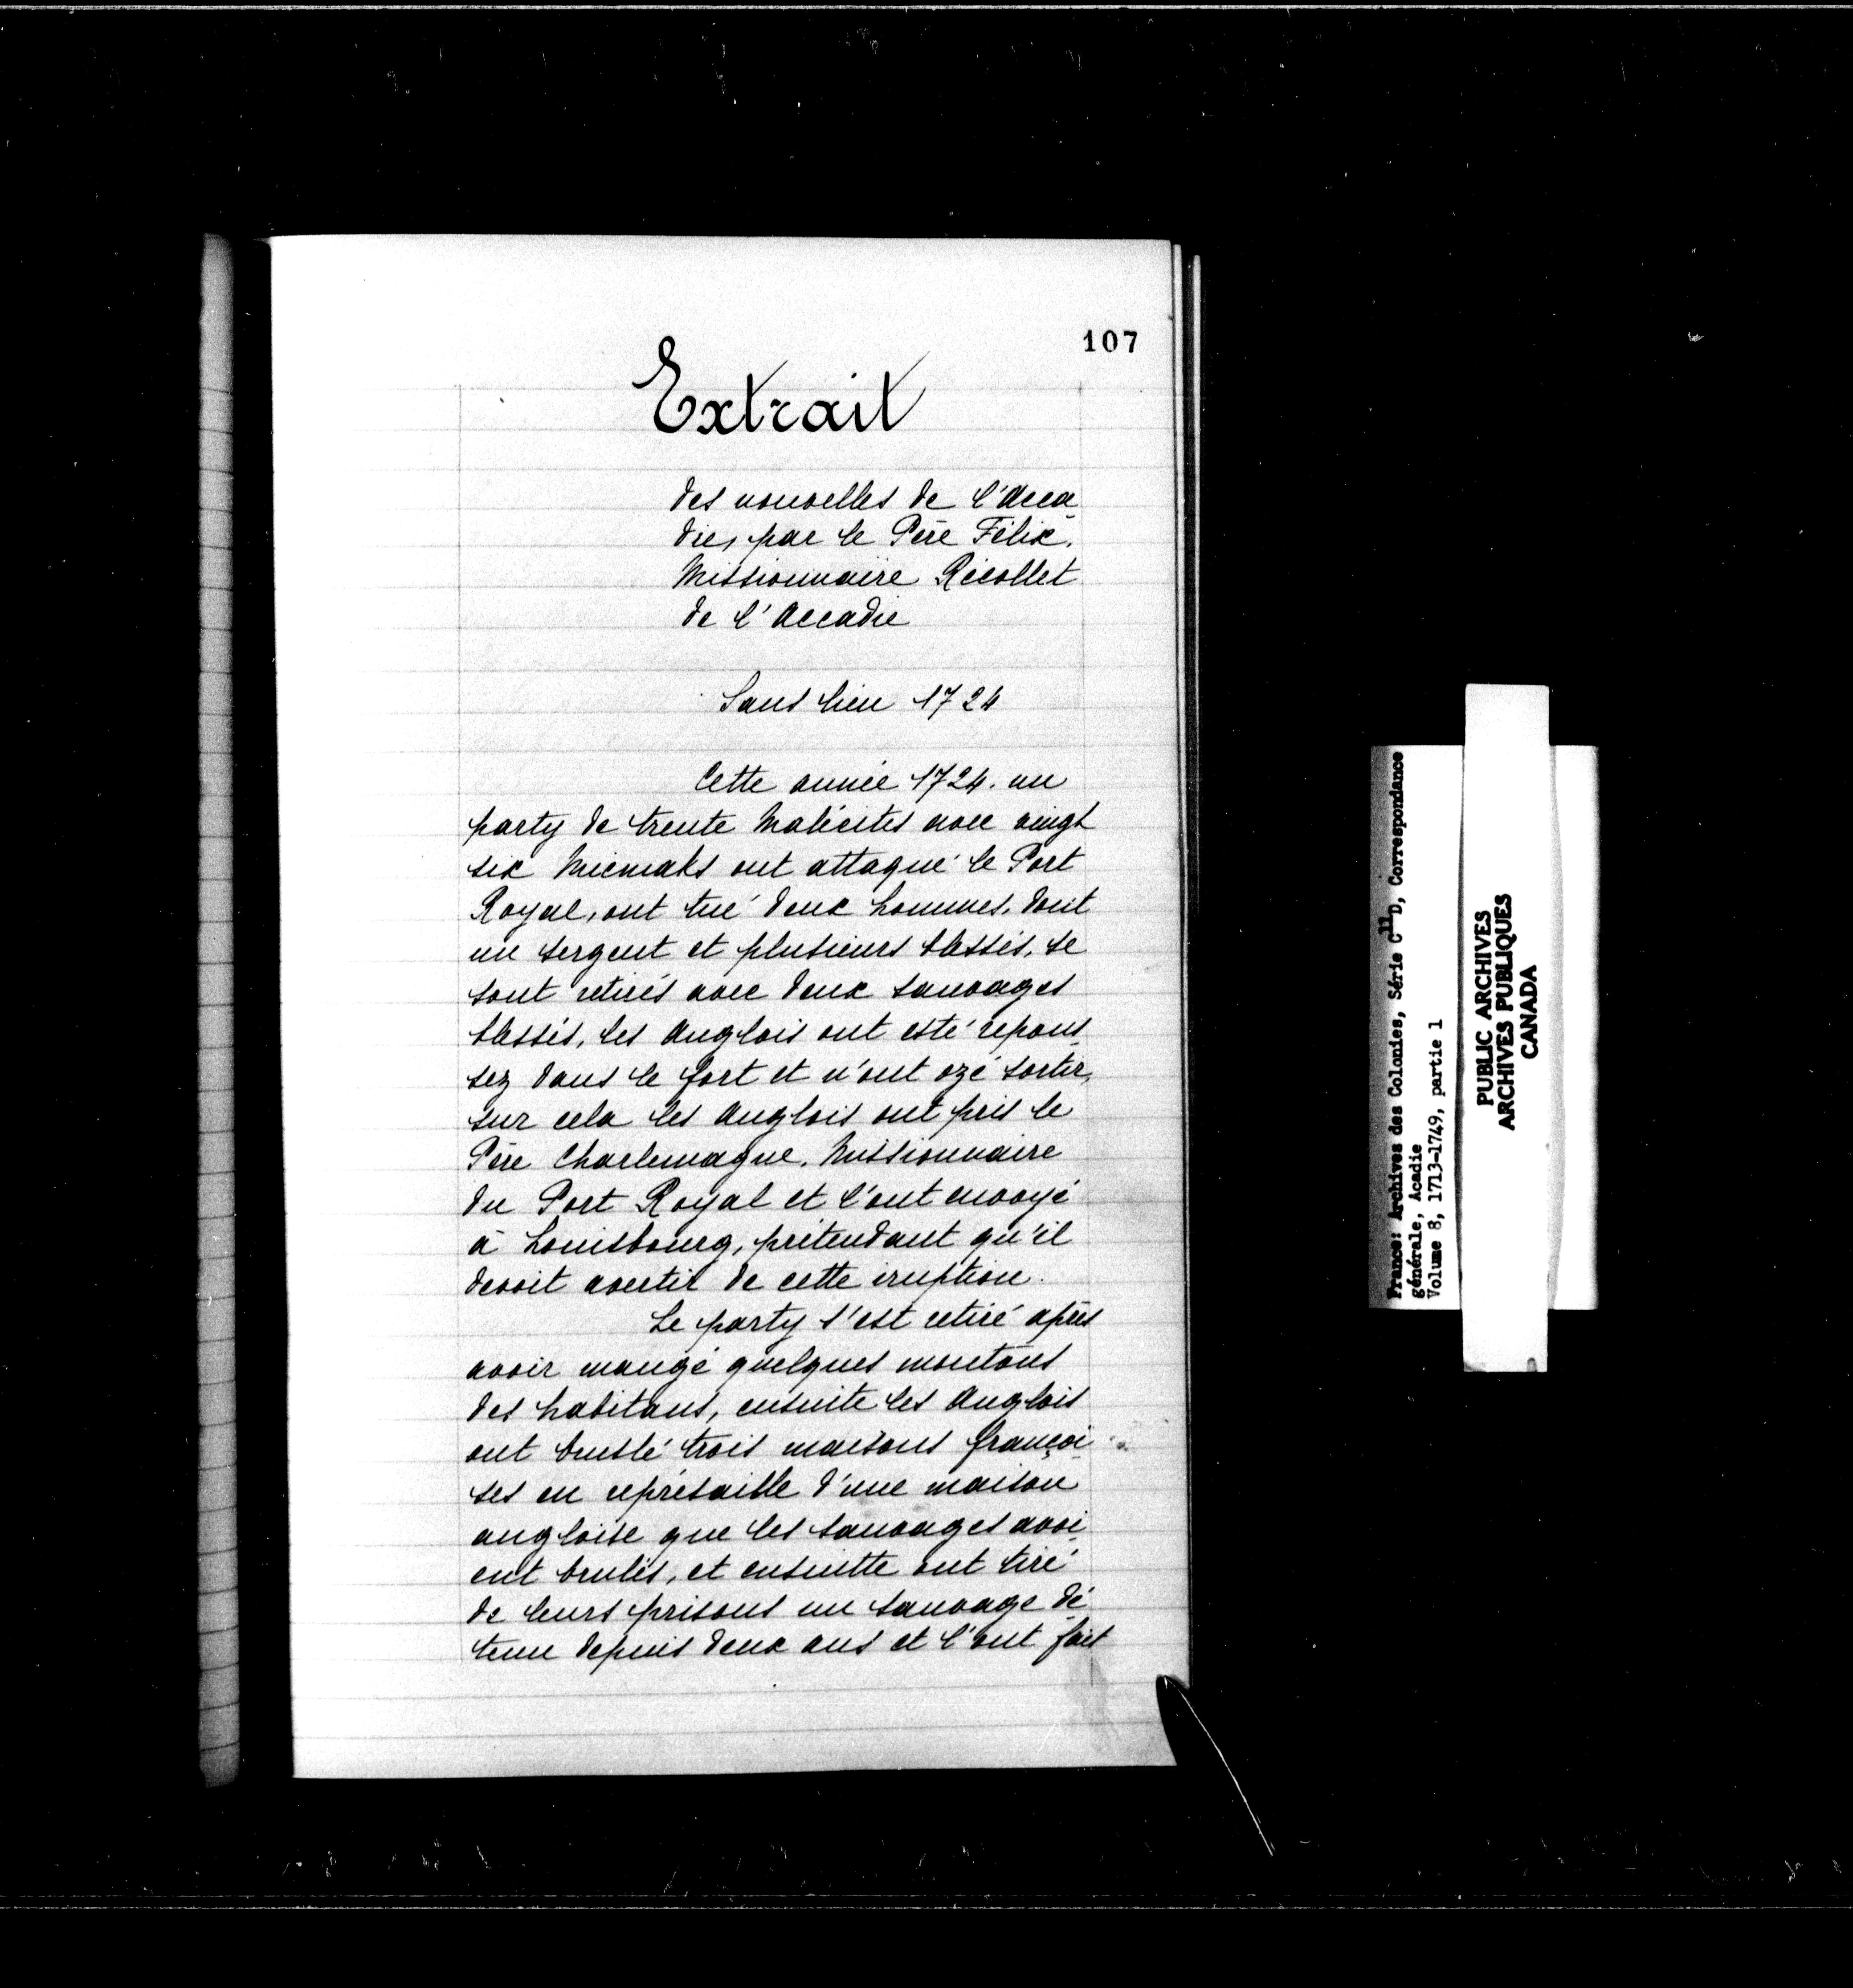 107
Extrait
des nouvelles de l'Acca
die, par le Père Félix.
Missionnaire Récollet
de l'Accadie
Sans lieu 1724
Cette année 1724. un
party de trente Malécites avec vingt
six Micmaks ont attaqué le Port
Royal, ont tué deux hommes, dont
un sergent et plusieurs blessés, se
sont retirés avec deux sauvages
blessés, les Anglois ont esté repous
sez dans le fort et n'ont ozé sortir,
sur cela les Anglois ont pris le
Père Charlemagne. Missionnaire
du Port Royal et l'ont envoyé
à Louisbourg, prétendant qu'il
devoit avertir de cette iruption.
Le party s'est retiré après
avoir mangé quelques moutons
des habitans, ensuite les Anglois
ont bruslé trois maisons françoi
ses en représaille d'une maison
angloise que les sauvages avoi
ent brulés, et ensuitte ont tiré
de leurs prisons un sauvage dé
tenu depuis deux ans et l'ont fait
France: Archives des Colonies, Série C11D, Correspondance
générale, Acadie
Volume 8, 1713-1749, partie 1
PUBLIC ARCHIVES
ARCHIVES PUBLIQUES
CANADA